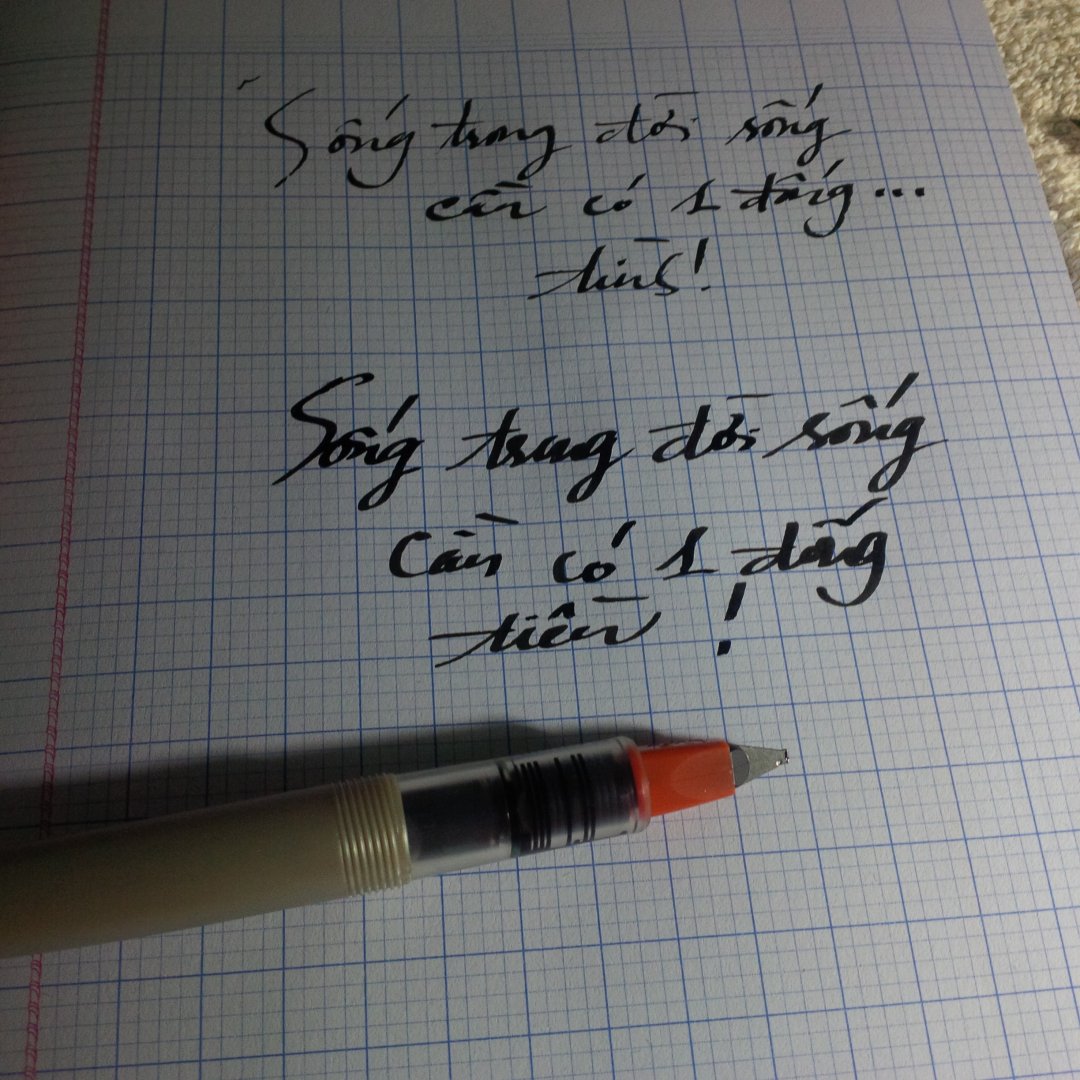 Sống trong đời sống
cần có 1 đống...
tiền!
Sống trong đời sống
Cần có 1 đống
tiền !